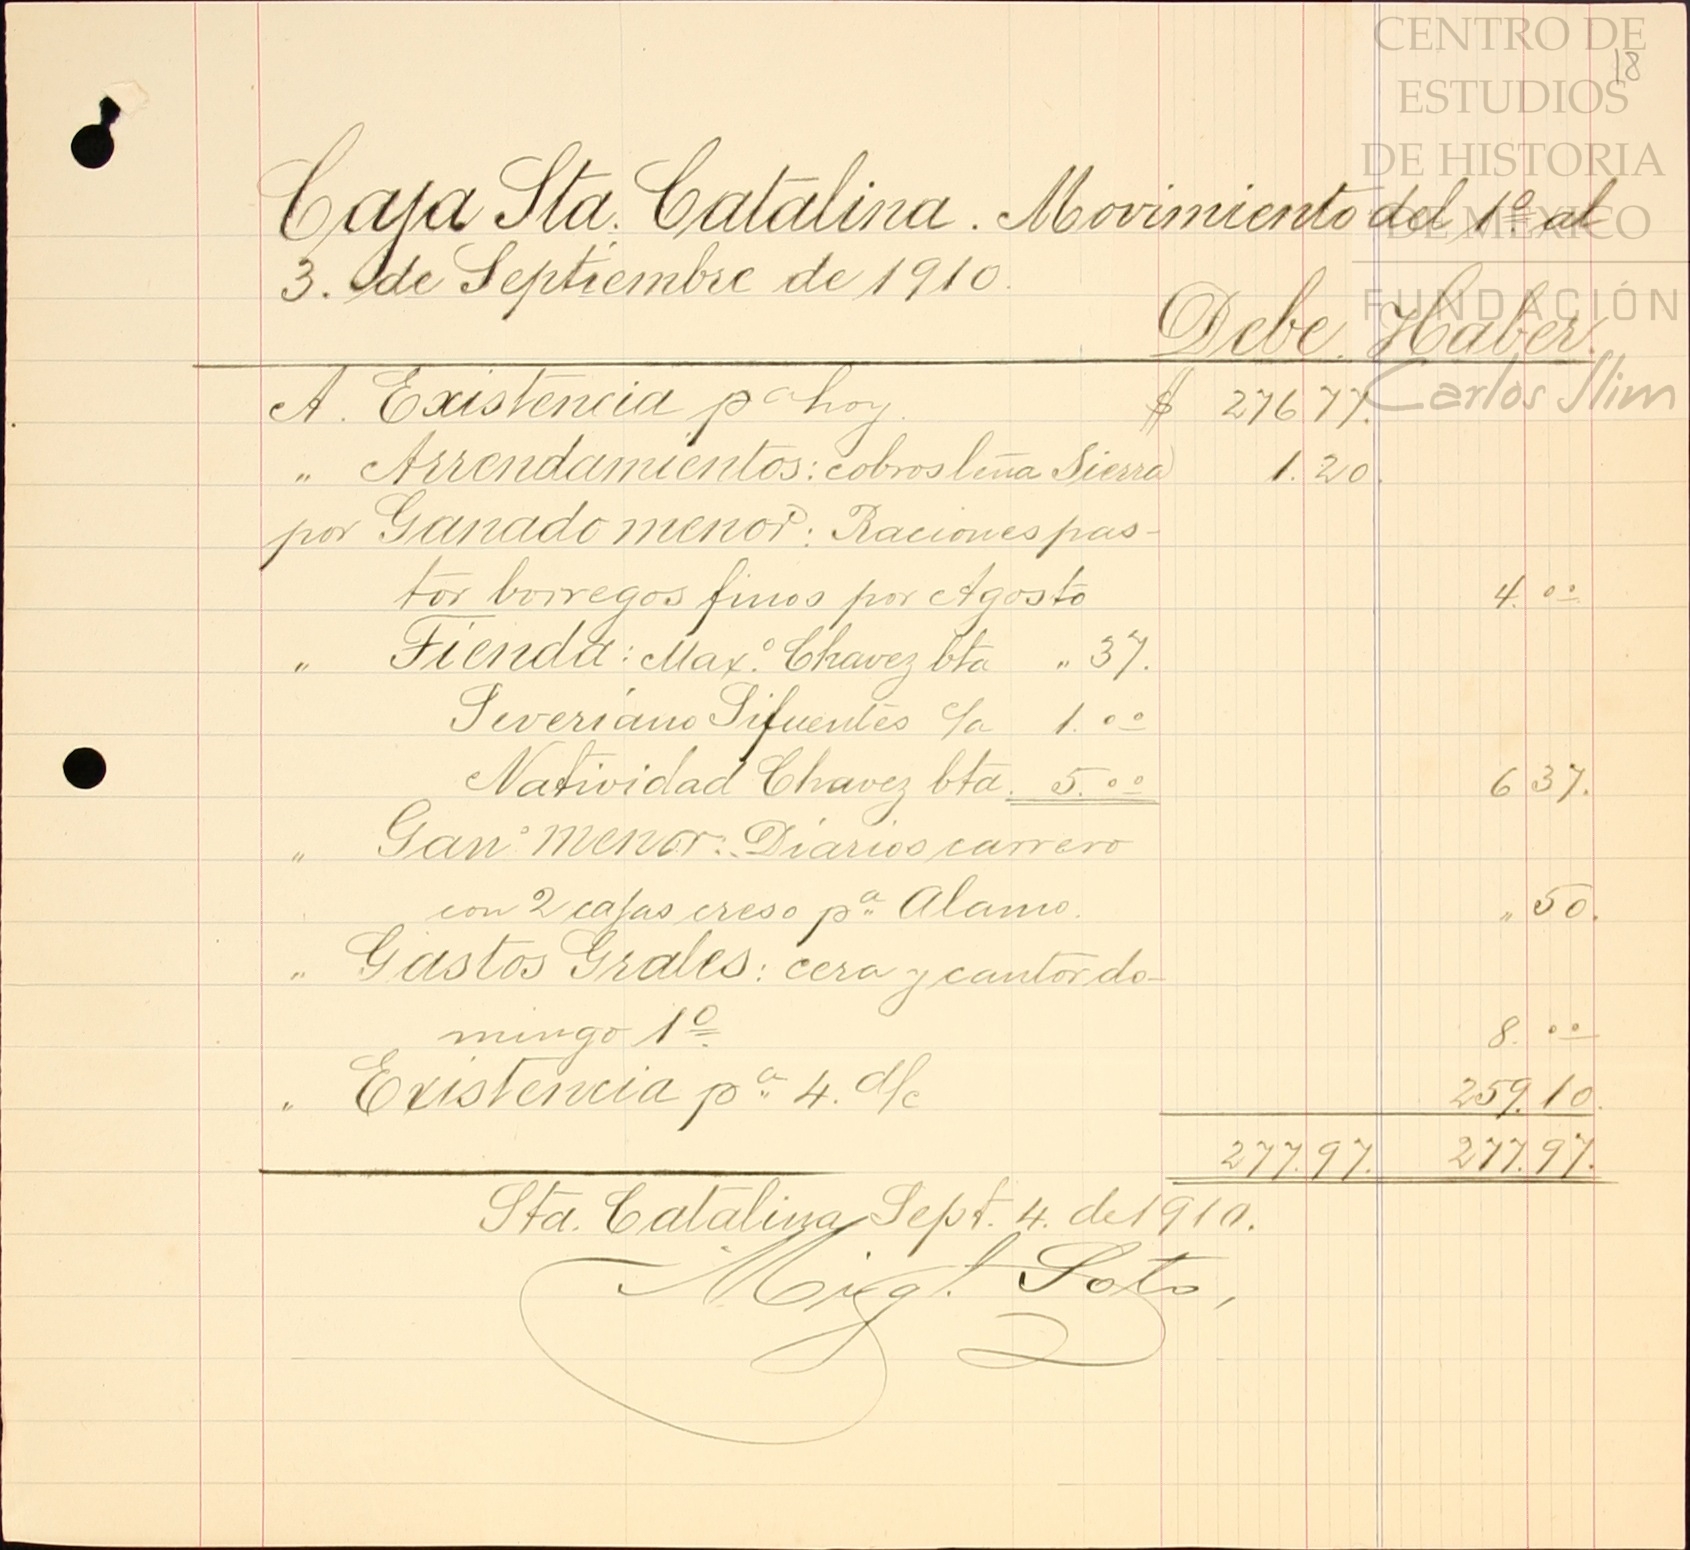 CENTRO DE
ESTUDIOS
DE HISTORIA
DE MÉXICO
FUNDACIÓN
Carlos Slim
18
Caja Sta. Catalina. Movimiento del 1º al
3. de Septiembre de 1910.
Debe. Haber.
A. Existencia pª hoy. $ 276 77.
" Arrendamientos: cobros leña Sierra 1.20.
por Ganado menor: Raciones pas-
tor borregos finos por Agosto 4.00
" Tienda: Maxº Chavez bta " 37.
Severiano Sifuentes c/a 1.00
Natividad Chavez bta. 5.00 6 37.
" Ganº menor: Diarios carrero
con 2 cajas creso pª Alamo. " 50.
" Gastos Grales: cera y cantor do-
mingo 1º 8.00
" Existencia pª 4. d/c 259.10.
277.97. 277.97.
Sta. Catalina Sept. 4. de 1910.
Migl. Soto,